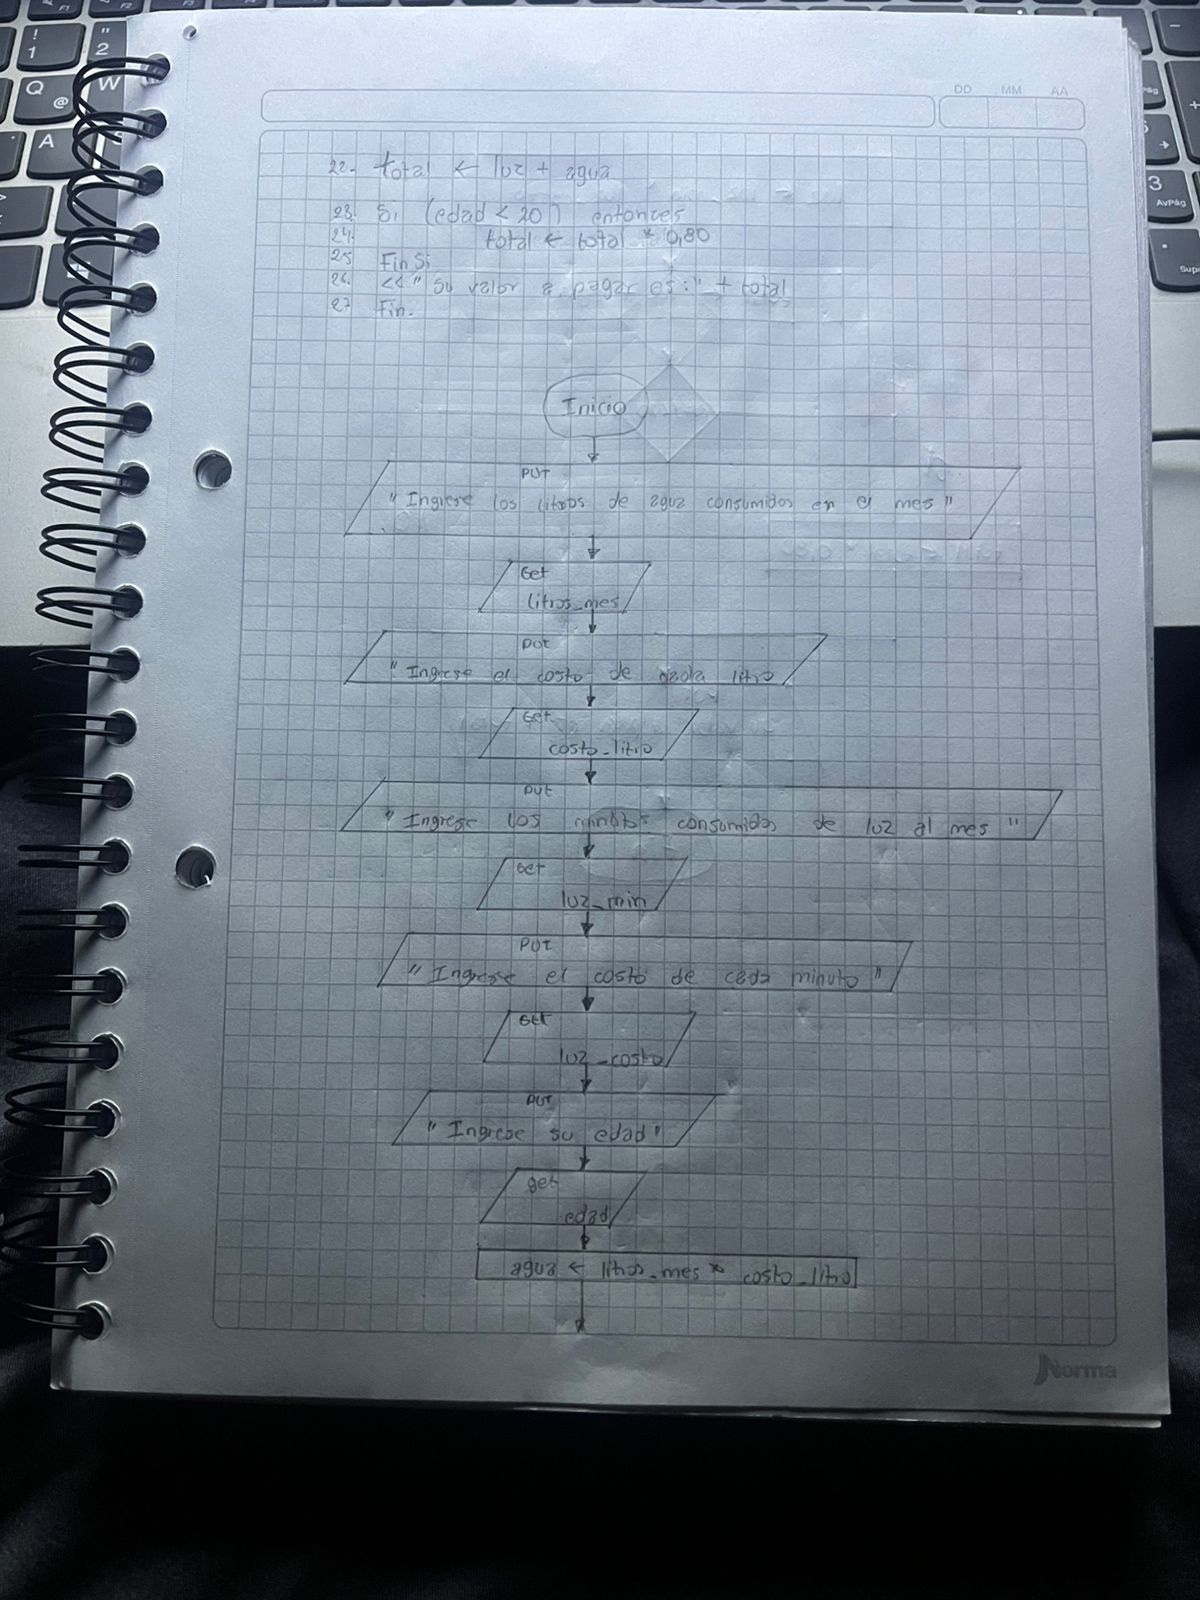 DD MM AA
22. total ← luz + agua
23. Si (edad < 20) entonces
24. total ← total * 0,80
25 FinSi
26. << " Su valor a pagar es:" + total
27 Fin.
Inicio
PUT
" Ingrese los litros de agua consumidos en el mes"
Get
litros_mes
PUT
" Ingrese el costo de cada litro
Get
costo_litro
PUT
" Ingrese los minutos consumidos de luz al mes "
Get
luz_min
PUT
" Ingrese el costo de cada minuto "
Get
luz_costo
PUT
" Ingrese su edad"
get
edad
agua ← litros_mes * costo_litro
Norma
! 1 " 2
Q @ W
A
3 AvPág
Supr